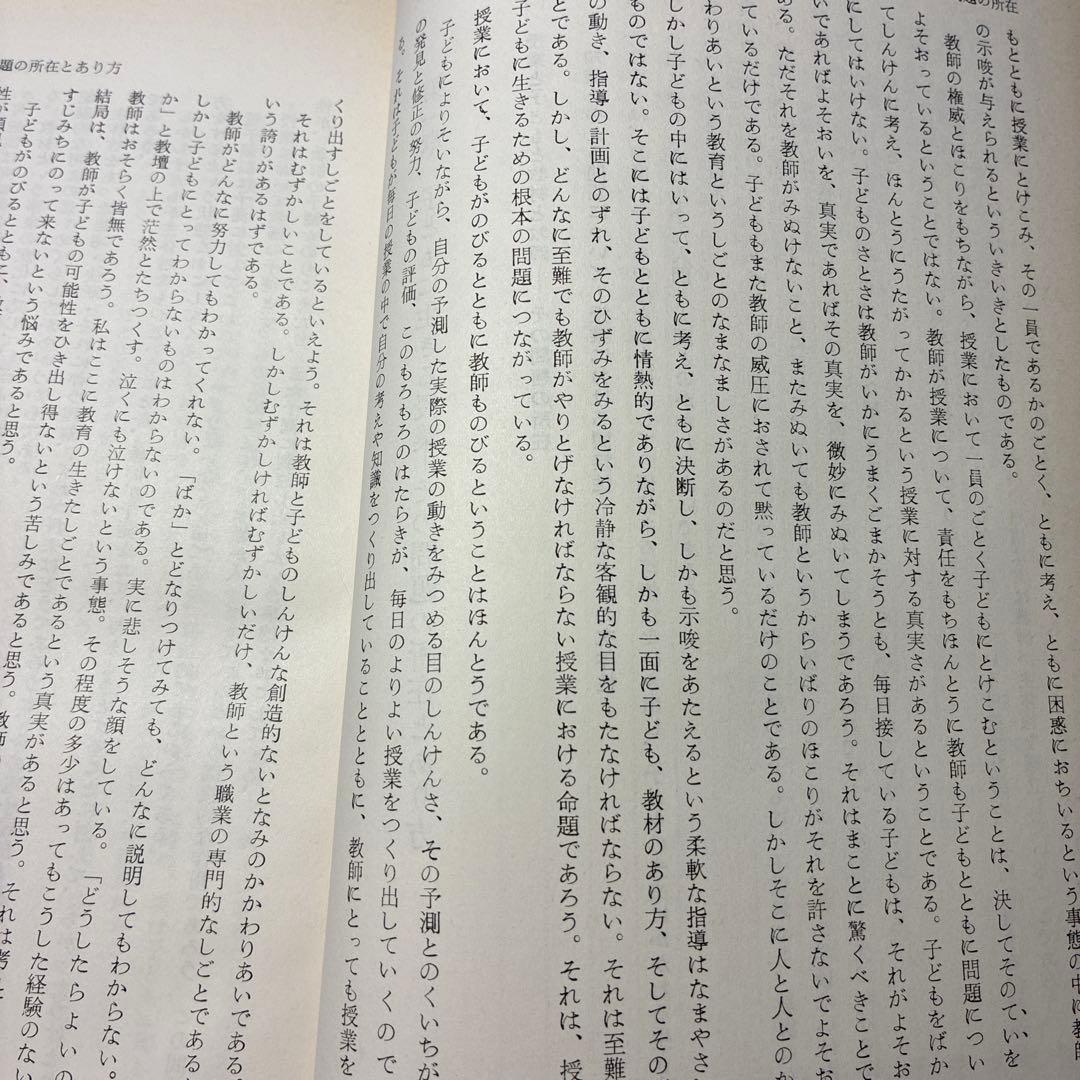 題の所在
もとともに授業にとけこみ、その一員であるかのごとく、ともに考え、ともに困惑におちいるという事態の中に教師
の示唆が与えられるといういきいきとしたものである。
教師の権威とほこりをもちながら、授業において一員のごとく子どもにとけこむということは、決してそのていを
よそおっているということではない。教師が授業について、責任をもちほんとうに教師も子どもとともに問題につい
てしんけんに考え、ほんとうにうたがってかかるという授業に対する真実さがあるということである。子どもをばか
にしてはいけない。子どものさとさは教師がいかにうまくごまかそうとも、毎日接している子どもは、それがよそお
いであればよそおいを、真実であればその真実を、微妙にみぬいてしまうであろう。それはまことに驚くべきことで
ある。ただそれを教師がみぬけないこと、またみぬいても教師というからいばりのほこりがそれを許さないでよそお
っているだけである。子どももまた教師の威圧におされて黙っているだけのことである。しかしそこに人と人とのか
かわりあいという教育というしごとのなまなましさがあるのだと思う。
しかし子どもの中にはいって、ともに考え、ともに決断し、しかも示唆をあたえるという柔軟な指導はなまやさ
ものではない。そこには子どもとともに情熱的でありながら、しかも一面に子ども、教材のあり方、そしてその
の動き、指導の計画とのずれ、そのひずみをみるという冷静な客観的な目をもたなければならない。それは至難
とである。しかし、どんなに至難でも教師がやりとげなければならない授業における命題であろう。それは、授
子どもに生きるための根本の問題につながっている。
授業において、子どもがのびるとともに教師ものびるということはほんとうである。
子どもによりそいながら、自分の予測した実際の授業の動きをみつめる目のしんけんさ、その予測とのくいちが
の発見と修正の努力、子どもの評価、このもろもろのはたらきが、毎日のよりよい授業をつくり出していくので
る。それは子どもが毎日の授業の中で自分の考えや知識をつくり出していることとともに、教師にとっても授業を
題の所在とあり方
くり出すしごとをしているといえよう。それは教師と子どものしんけんな創造的ないとなみのかかわりあいである。
それはむずかしいことである。しかしむずかしければむずかしいだけ、教師という職業の専門的なしごとである
いう誇りがあるはずである。
教師がどんなに努力してもわかってくれない。「ばか」とどなりつけてみても、どんなに説明してもわからない。
しかし子どもにとってわからないものはわからないのである。実に悲しそうな顔をしている。「どうしたらよいの
か」と教壇の上で茫然とたちつくす。泣くにも泣けないという事態。その程度の多少はあってもこうした経験のない
教師はおそらく皆無であろう。私はここに教育の生きたしごとであるという真実があると思う。それは考え
結局は、教師が子どもの可能性をひき出し得ないという苦しみであると思う。教師
すじみちにのって来ないという悩みであると思う。
子どもがのびるとともに、
性が